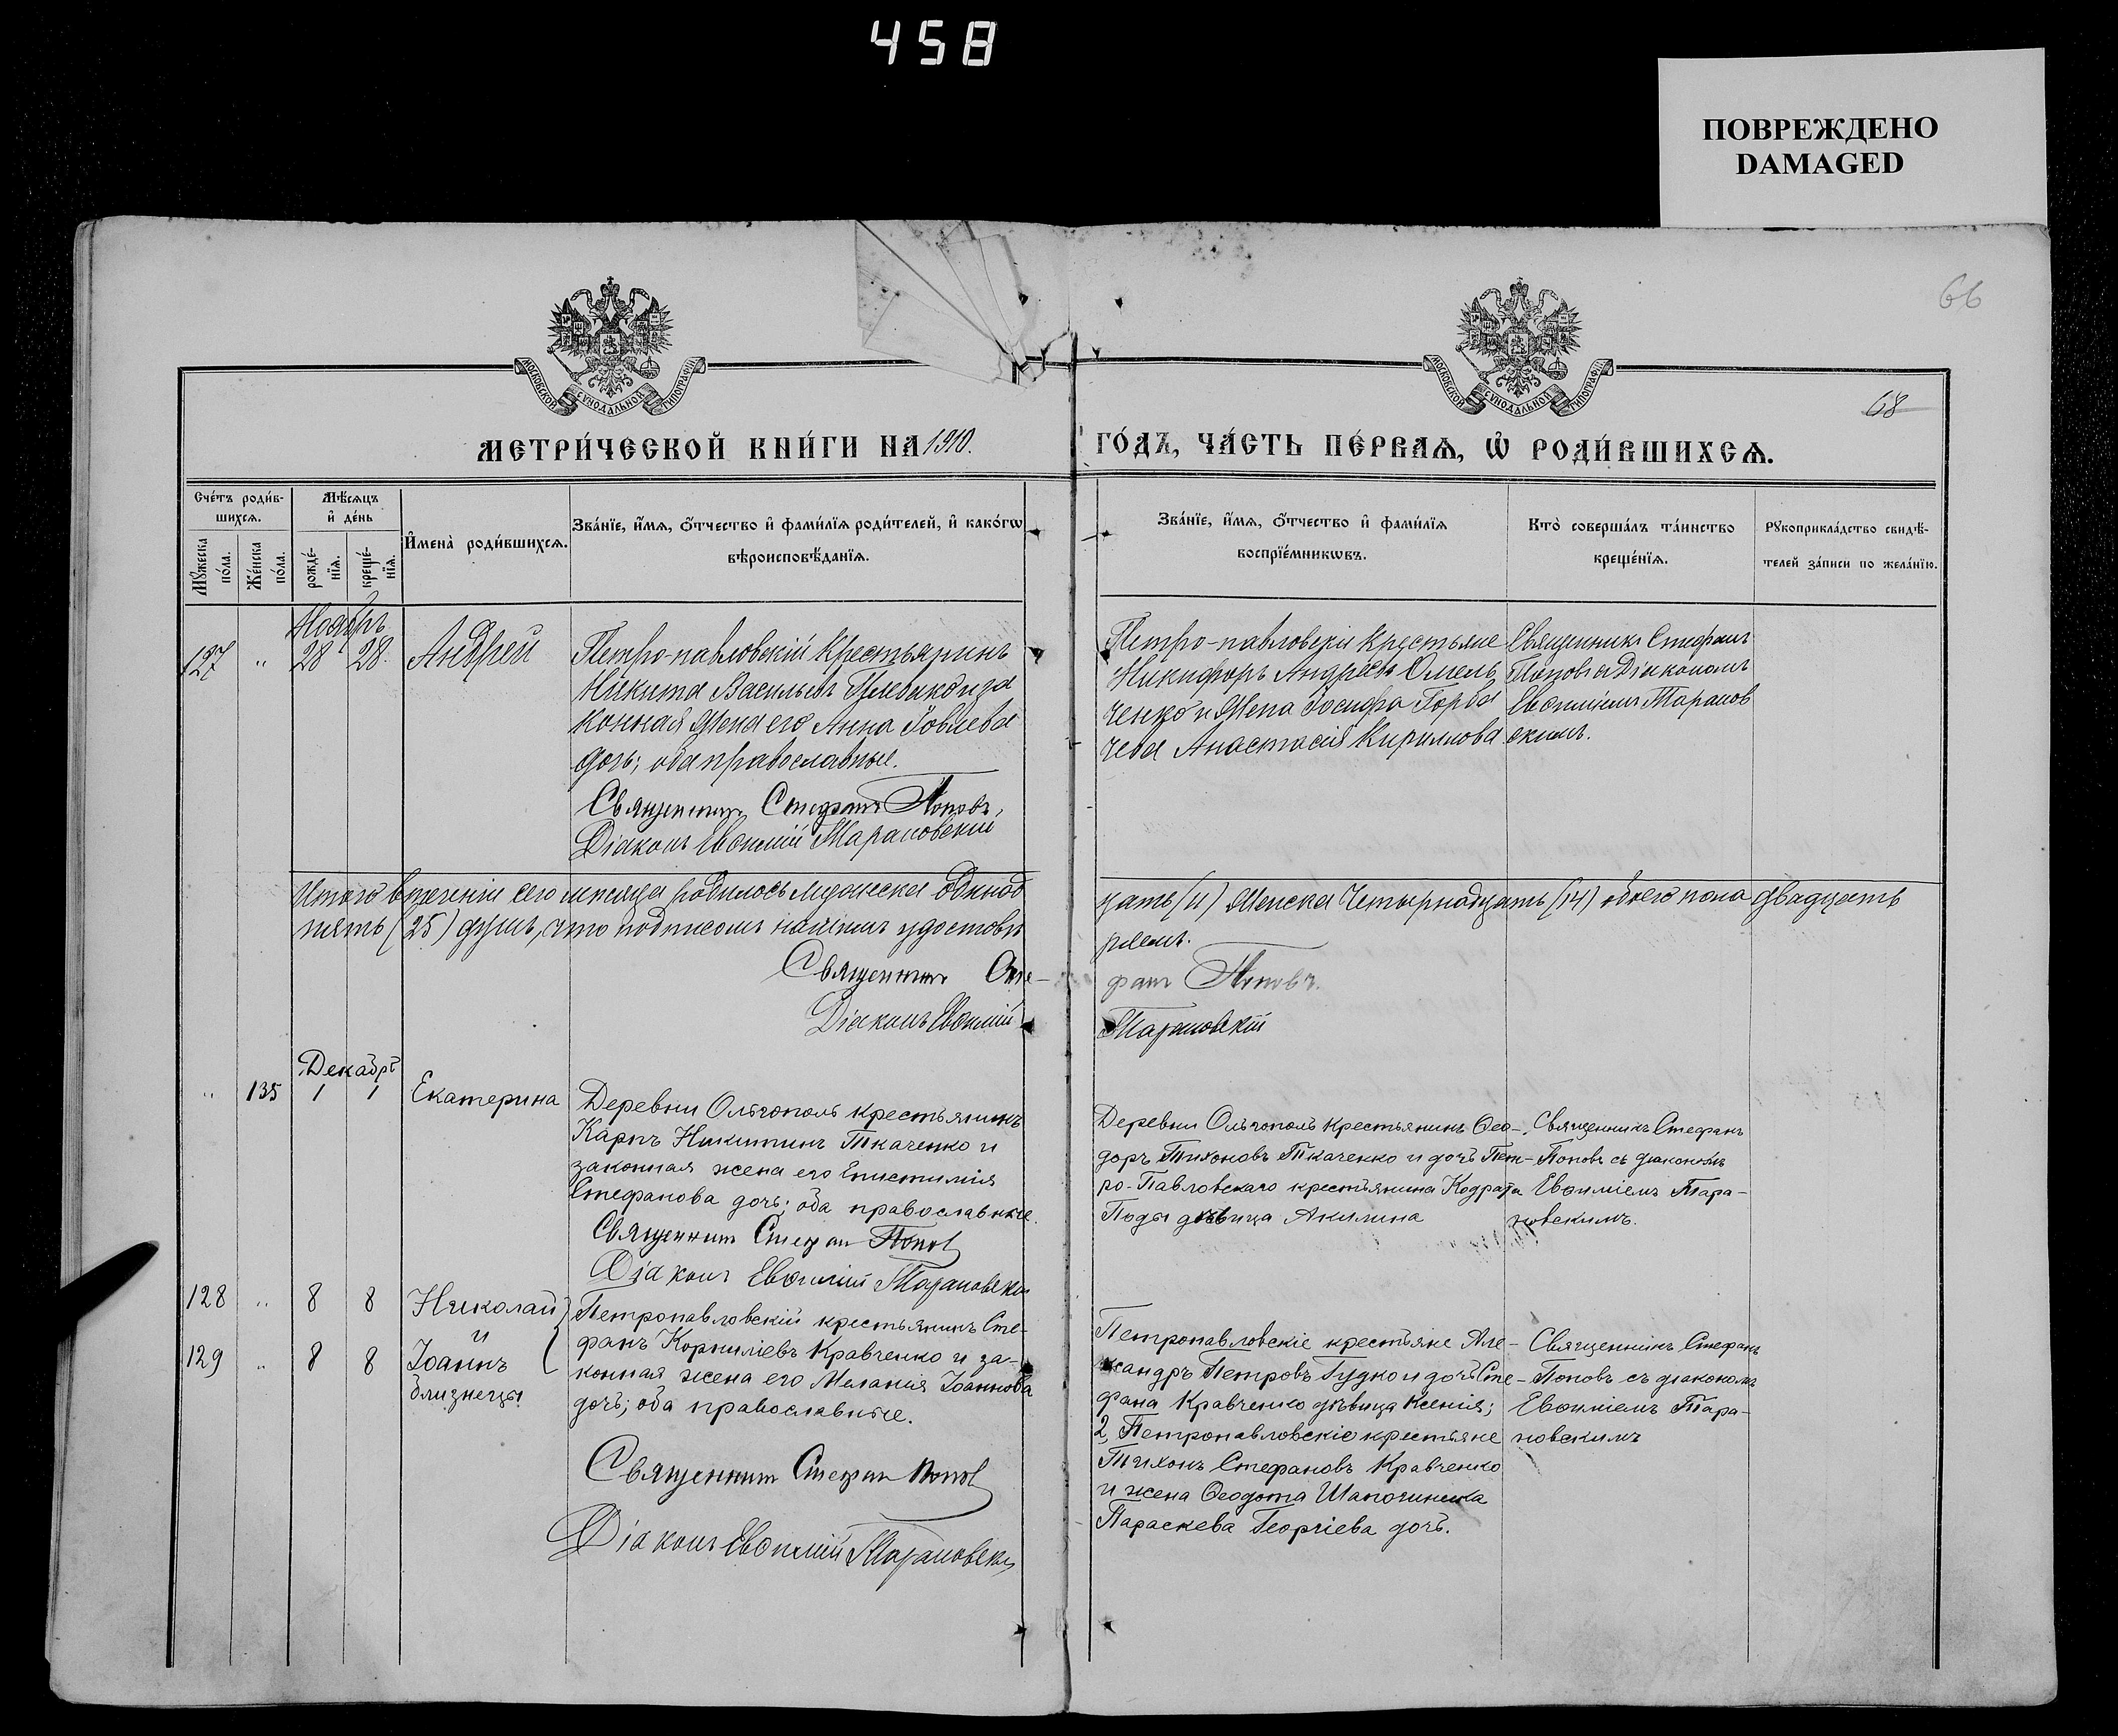 458
ПОВРЕЖДЕНО
DAMAGED
66
МОСКОВСКОЙ СУНОДАЛЬНОЙ ТИПОГРАФІИ
МОСКОВСКОЙ СУНОДАЛЬНОЙ ТИПОГРАФІИ
68
МЕТРИ́ЧЕСКОЙ КНИ́ГИ НА 1910.
ГО́ДЪ, ЧА́СТЬ ПЕ́РВАѦ, Ѡ҆ РОДИ́ВШИХСѦ.
Сче́тъ роди́в-
шихсѧ.
Мꙋ́жеска по́ла.
Же́нска по́ла.
Мѣ́сѧцъ
и҆ де́нь
рожде́-
нїѧ.
креще́-
нїѧ.
И҆мена̀ роди́вшихсѧ.
Зва́нїе, и҆́мѧ, ѻ҆́тчество и҆ фами́лїѧ роди́телей, и҆ како́гѡ
вѣроисповѣ́данїѧ.
Зва́нїе, и҆́мѧ, ѻ҆́тчество и҆ фами́лїѧ
воспрїе́мникѡвъ.
Кто̀ соверша́лъ та́инство
креще́нїѧ.
Рꙋкоприкла́дство свидѣ́-
телей за́писи по жела́нїю.
Ноябрь
127 " 28 28. Андрей
Петро-павловскій Крестьянинъ
Никита Васильевъ и за
конная жена его Анна Іовлева
дочь; оба православные.
Священникъ Стефанъ Поповъ,
Діаконъ Евѳимій Тарановскій
Петро-павловскіе Крестьяне
Никифоръ Андреевъ Омель
ченко и жена Іосифа Горба
чева Анастасія Кириллова
Священникъ Стефанъ
Поповъ съ Діакономъ
Евѳиміемъ Таранов
скимъ.
Итого въ теченіи сего месяца родилось мужеска одинад
цать (11) женска Четырнадцать (14) обоего пола двадцать
пять (25) душъ, что подписомъ нашимъ удостовѣ
ряемъ.
Священникъ Сте-
фанъ Поповъ.
Діаконъ Евѳимій
Тарановскій
Декабрь
" 135 1 1 Екатерина
Деревни Ольгополь крестьянинъ
Карпъ Никитинъ Ткаченко и
законная жена его Епистимія
Стефанова дочь; оба православные.
Священникъ Стефан Попов
Діаконъ Евѳимій Тарановскій
Деревни Ольгополь крестьянинъ Ѳео-
доръ Тихоновъ Ткаченко и дочь Пет-
ро-Павловскаго крестьянина Кодрата
Поды дѣвица Акилина
Священникъ Стефанъ
Поповъ съ діакономъ
Евѳиміемъ Тара-
новскимъ.
128 " 8 8 Николай
и
129 " 8 8 Іоаннъ
близнецы
Петропавловскій крестьянинъ Сте-
фанъ Корниліевъ Кравченко и за-
конная жена его Меланія Іоаннова
дочь; оба православные.
Священник Стефан Попов
Діаконъ Евѳимій Тарановскій
Петропавловскіе крестьяне Але-
ксандръ Петровъ Гудко и дочь Сте-
фана Кравченко дѣвица Ксенія;
2, Петропавловскіе крестьяне
Тихонъ Стефановъ Кравченко
и жена Ѳеодота
Параскева Георгіева дочь.
Священникъ Стефанъ
Поповъ съ діакономъ
Евѳиміемъ Тара-
новскимъ